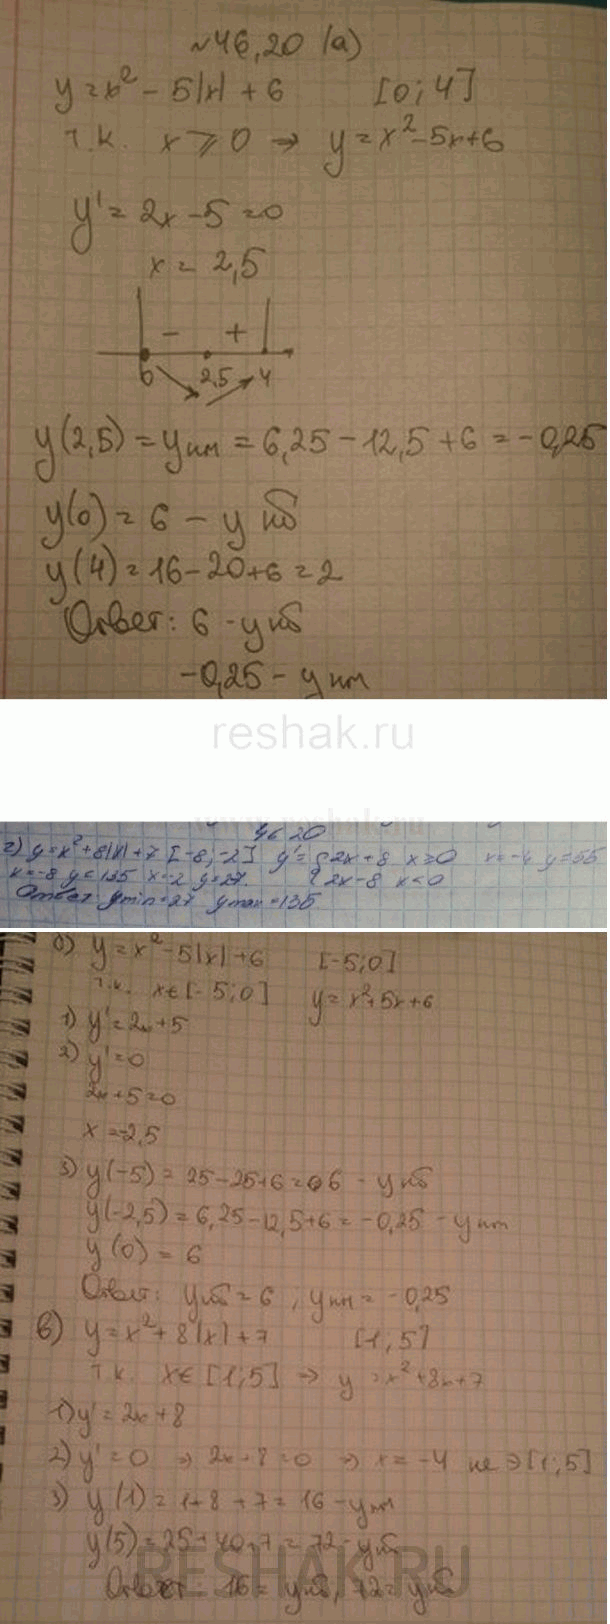 №46,20 (а)
y = x² - 5|x| + 6 [0; 4]
т.к. x ⩾ 0 → y = x² - 5x + 6
y' = 2x - 5 = 0
x = 2,5
- +
0 2,5 4
y(2,5) = y нм = 6,25 - 12,5 + 6 = -0,25
y(0) = 6 - y нб
y(4) = 16 - 20 + 6 = 2
Ответ: 6 - y нб
-0,25 - y нм
reshak.ru
46 20
г) y = x² + 8|x| + 7 [-8, -2] y' = { 2x + 8 x ⩾ 0 x = -4 y = 55
x = -8 y = 135 x = -2 y = 27. 2x - 8 x < 0
Ответ ymin = 27 ymax = 135
б) y = x² - 5|x| + 6 [-5; 0]
т.к. x ∈ [-5; 0] y = x² + 5x + 6
1) y' = 2x + 5
2) y' = 0
2x + 5 = 0
x = -2,5
3) y(-5) = 25 - 25 + 6 = 6 - y нб
y(-2,5) = 6,25 - 12,5 + 6 = -0,25 - y нм
y(0) = 6
Ответ: y нб = 6 ; y нм = -0,25
в) y = x² + 8|x| + 7 [1, 5]
т.к. x ∈ [1; 5] → y = x² + 8x + 7
1) y' = 2x + 8
2) y' = 0 → 2x + 8 = 0 → x = -4 не ∋ [1; 5]
3) y(1) = 1 + 8 + 7 = 16 - y нм
y(5) = 25 + 40 + 7 = 72 - y нб
Ответ 16 = y нб, 72 = y нб
RESHAK.RU